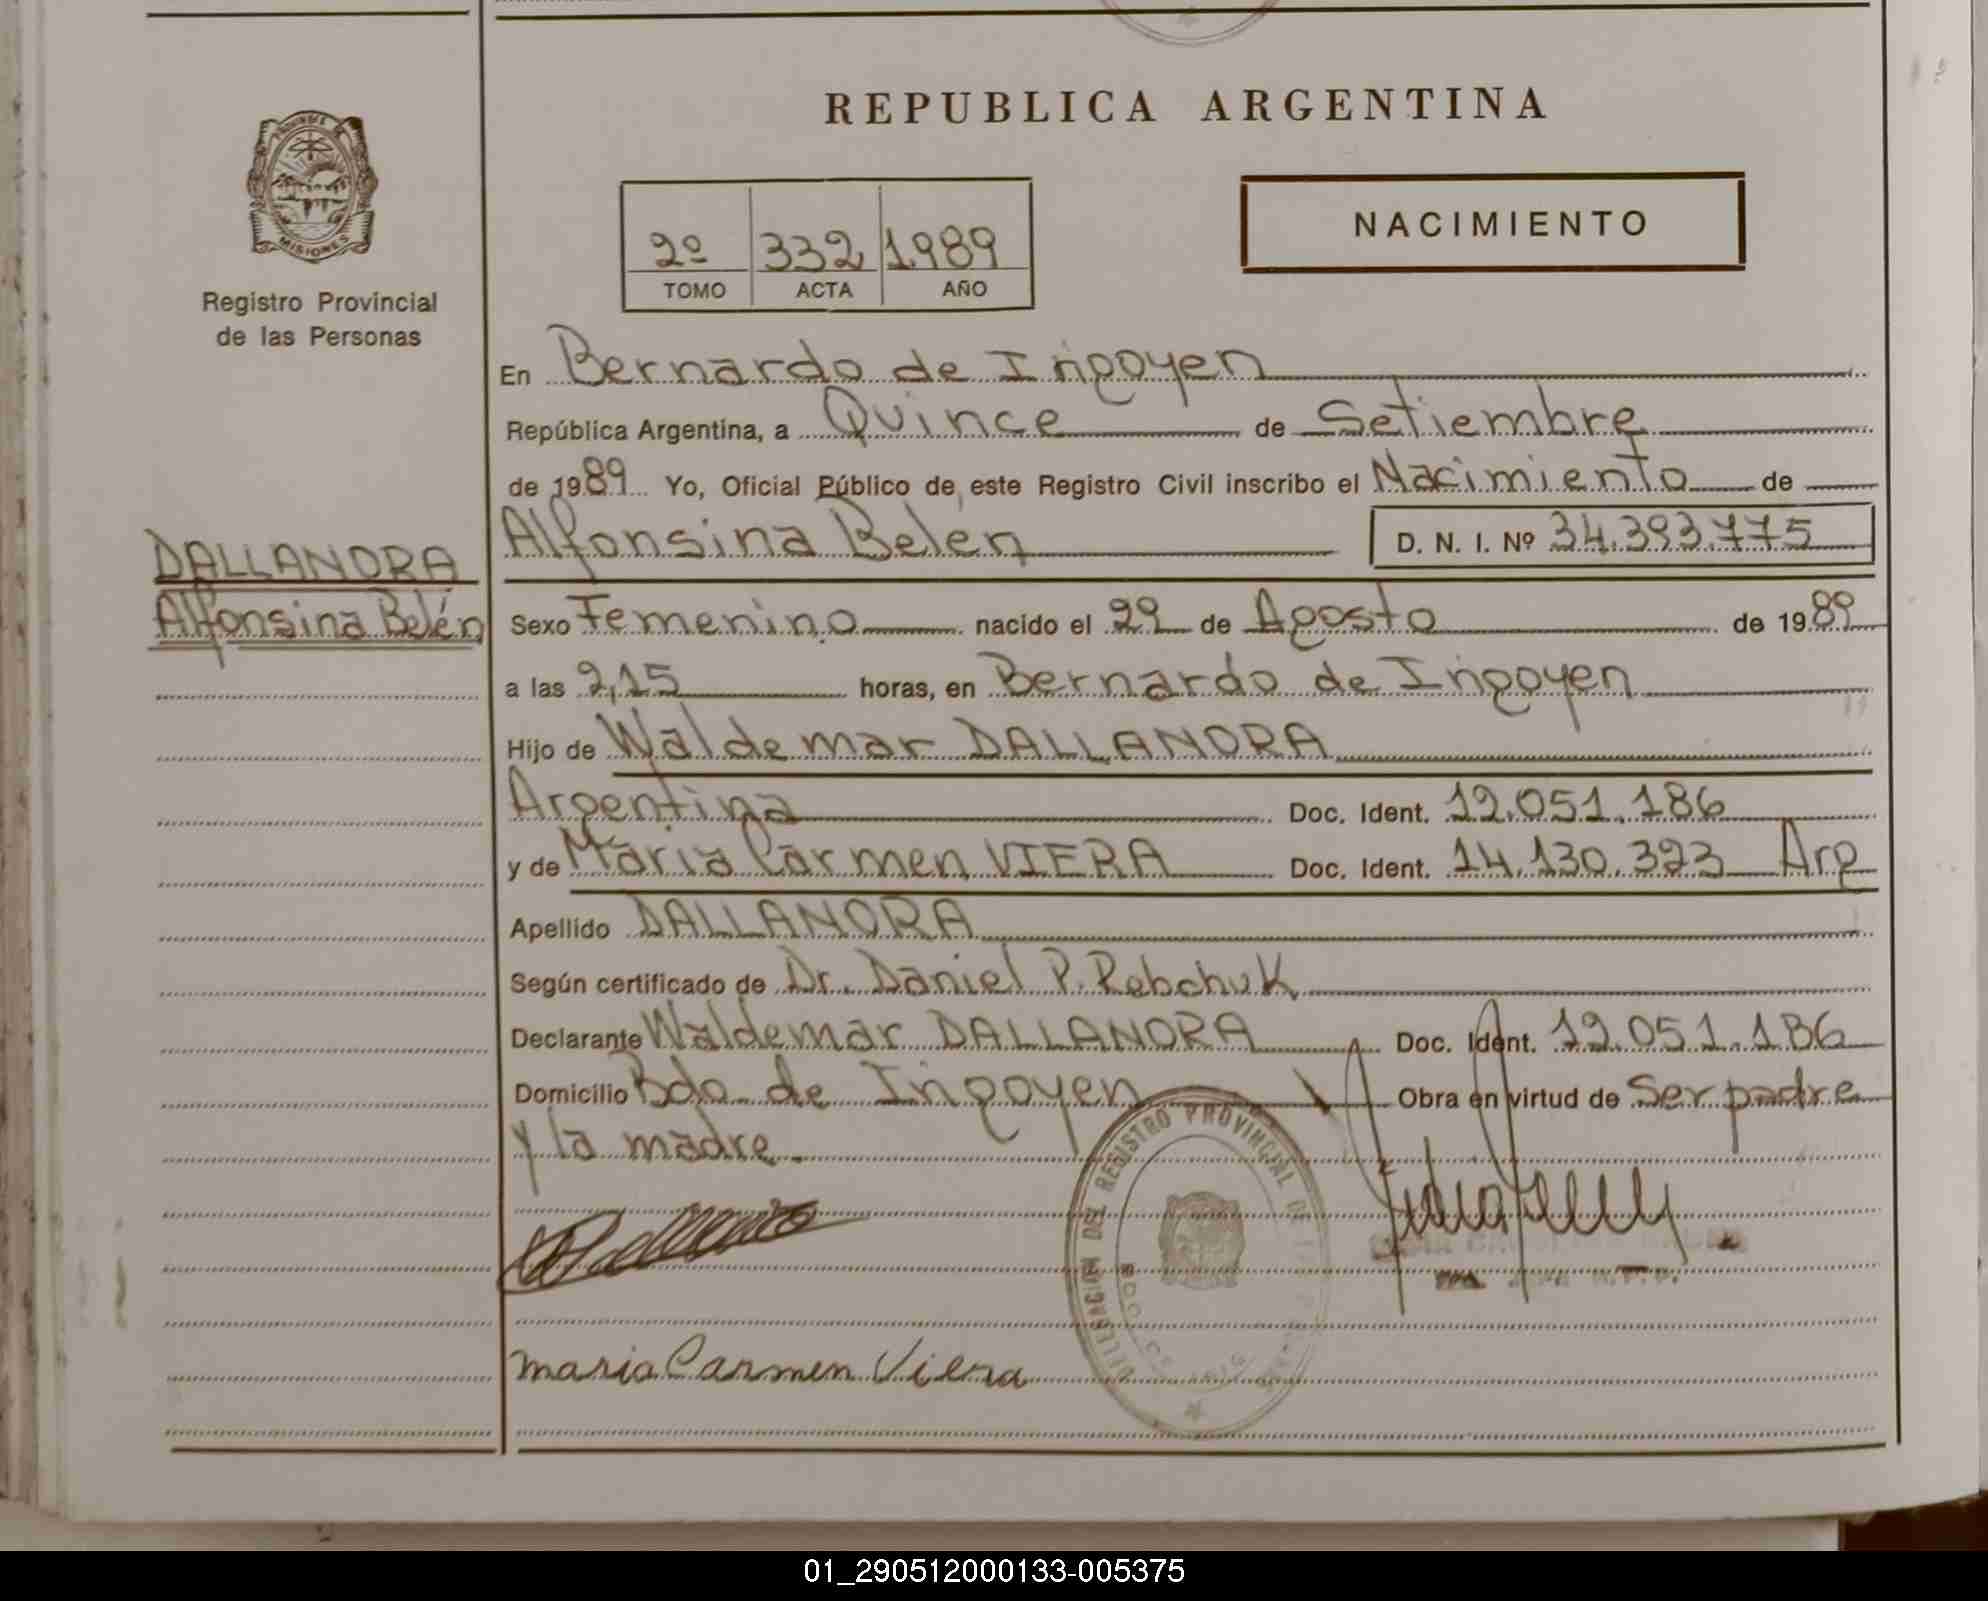 REPUBLICA ARGENTINA
PROVINCIA DE
MISIONES
Registro Provincial
de las Personas
2º 332 1989
TOMO ACTA AÑO
NACIMIENTO
En Bernardo de Irigoyen
República Argentina, a Quince de Setiembre
de 1989 Yo, Oficial Público de este Registro Civil inscribo el Nacimiento de
Alfonsina Belén D. N. I. Nº 34.393.775
DALLANORA
Alfonsina Belén
Sexo Femenino nacido el 29 de Agosto de 1989
a las 2,15 horas, en Bernardo de Irigoyen
Hijo de Waldemar DALLANORA
Argentina Doc. Ident. 12.051.186
y de Maria Carmen VIERA Doc. Ident. 14.130.323 Arg
Apellido DALLANORA
Según certificado de Dr. Daniel P. Rebchuk
Declarante Waldemar DALLANORA Doc. Ident. 12.051.186
Domicilio Bdo. de Irigoyen Obra en virtud de Ser padre
y la madre.
DELEGACION DEL REGISTRO PROVINCIAL DE
Maria Carmen Viera
01_290512000133-005375